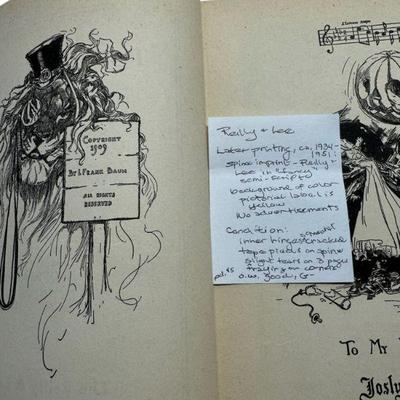 COPYRIGHT
1909
BY L. FRANK BAUM
ALL RIGHTS
RESERVED
Reilly & Lee
Later printing, ca. 1934-
1951:
spine imprint - Reilly &
Lee in "fancy"
semi-script
background of color
pictorial label is
yellow
No advertisements
Condition:
inner hinges cracked
tape pieces on spine
slight tears on 3 pages
fraying on corners
o.w. good, G-
pd. 45
To My
Josly